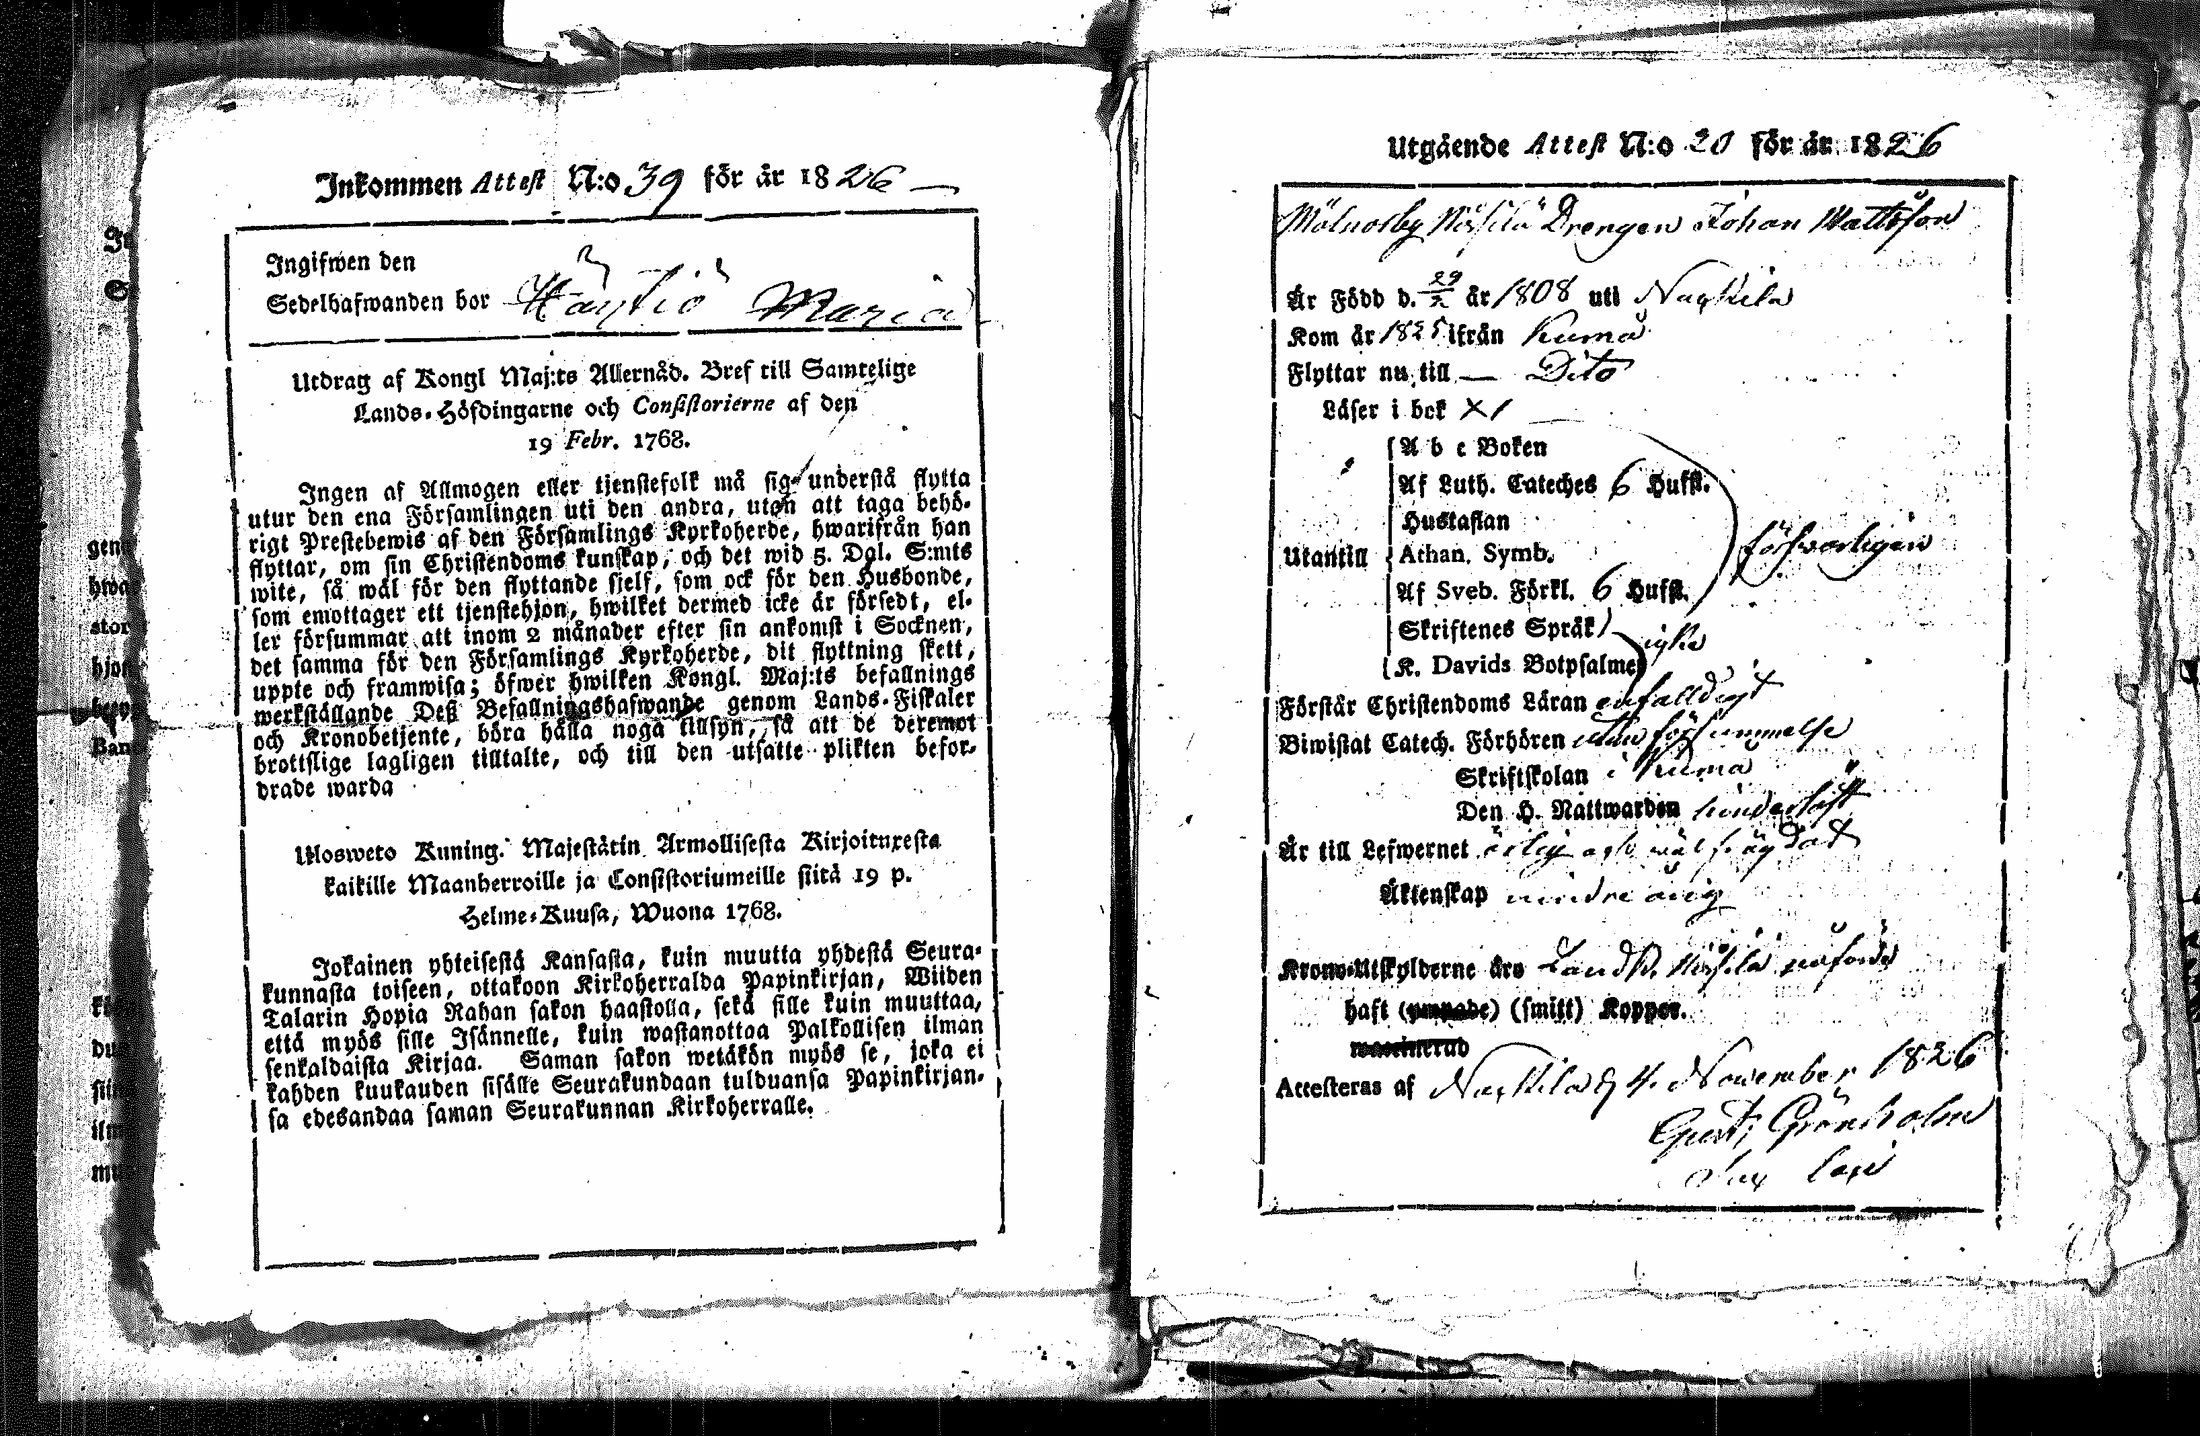 Inkommen Attest N:o 39 för år 1826
Ingifwen den
Sedelhafwanden bor Maria
Utdrag af Kongl Maj:ts Allernåd. Bref till Samtelige
Lands-Höfdingarne och Consistorierne af den
19 Febr. 1768.
Ingen af Allmogen eller tjenstefolk må sig understå flytta
utur den ena Församlingen uti den andra, utan att taga behö-
rigt Prestebewis af den Församlings Kyrkoherde, hwarifrån han
flyttar, om sin Christendoms kunskap, och det wid 5. Dal. S:mts
wite, så wäl för den flyttande sjelf, som ock för den Husbonde,
som emottager ett tjenstehjon, hwilket dermed icke är försedt, el-
ler försummar att inom 2 månader efter sin ankomst i Socknen,
det samma för den Församlings Kyrkoherde, dit flyttning skett,
uppte och framwisa; öfwer hwilken Kongl. Maj:ts befallnings
werkställande Deß Befallningshafwande genom Lands-Fiskaler
och Kronobetjente, böra hålla noga tillsyn, så att de deremot
brottslige lagligen tilltalte, och till den utsatte plikten befor-
drade warda
Ulosweto Kuning. Majestätin Armollisesta Kirjoituxesta
kaikille Maanherroille ja Consistoriumeille siitä 19 p.
Helme-Kuusa, Wuona 1768.
Jokainen yhteisestä Kansasta, kuin muutta yhdestä Seura-
kunnasta toiseen, ottakoon Kirkoherralda Papinkirjan, Wiiden
Talarin Hopia Rahan sakon haastolla, sekä sille kuin muuttaa,
että myös sille Isännelle, kuin wastanottaa Palkollisen ilman
senkaldaista Kirjaa. Saman sakon wetäkön myös se, joka ei
kahden kuukauden sisälle Seurakundaan tulduansa Papinkirjan-
sa edesandaa saman Seurakunnan Kirkoherralle.
Utgående Attest N:o 20 för år 1826
Drengen Johan Mattsson
Är Född d. 29/2 år 1808 uti Nackila
Kom år 1825 ifrån Kumo
Flyttar nu till — Dito
Läser i bok X/
A b c Boken
Af Luth. Cateches 6 Hufst.
Hustaflan
Utantill Athan. Symb. försvarligen
Af Sveb. Förkl. 6 Hufst.
Skriftenes Språk
K. Davids Botpsalme
Förstår Christendoms Läran enfalldigt
Biwistat Catech. Förhören utan försummelse
Skriftskolan i Kumo
Den H. Nattwarden hinderlöst
Är till Lefwernet ärlig och wäl frägdad
Äktenskap mindreårig
Krono-Utskylderne äro
haft (ympade) (smitt) Koppor.
waccinerad
Attesteras af Nackila d 4. November 1826
Gust: Grönholm